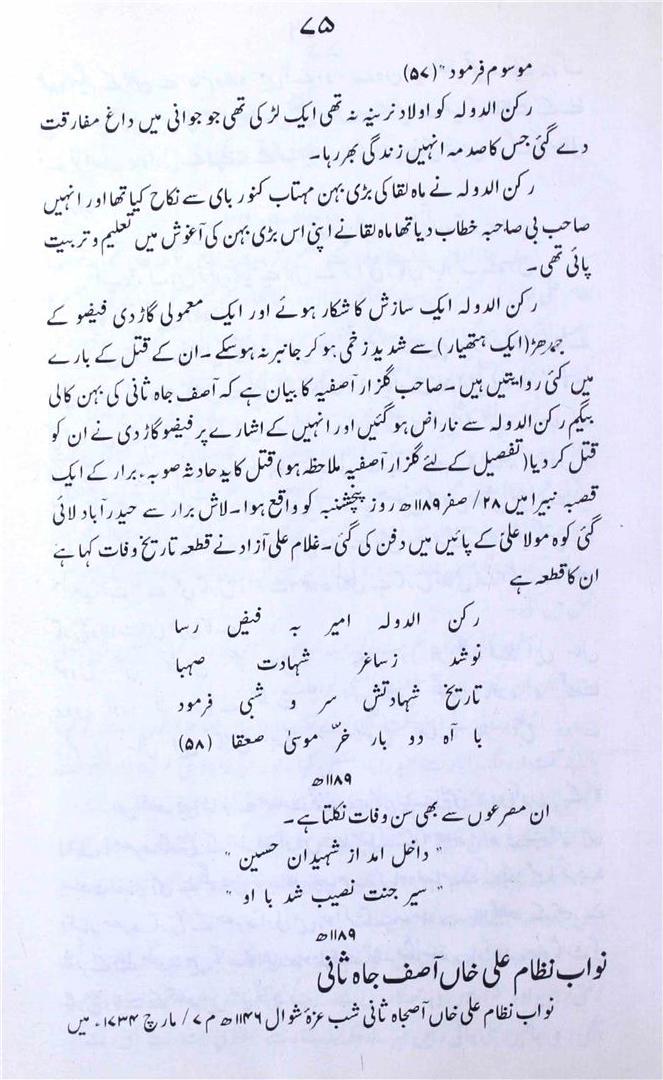 ۷۵
موسوم فرمود " (۵۷)
رکن الدولہ کو اولاد نرینہ نہ تھی ایک لڑکی تھی جو جوانی میں داغ مفارقت
دے گئی جس کا صدمہ انہیں زندگی بھر رہا۔
رکن الدولہ نے ماہ لقا کی بڑی بہن مہتاب کنور بای سے نکاح کیا تھا اور انہیں
صاحب بی صاحبہ خطاب دیا تھا ماہ لقا نے اپنی اس بڑی بہن کی آغوش میں تعلیم و تربیت
پائی تھی۔
رکن الدولہ ایک سازش کا شکار ہوئے اور ایک معمولی گاڑدی فیضو کے
جمدھڑ (ایک ہتھیار) سے شدید زخمی ہو کر جانبر نہ ہوسکے۔ ان کے قتل کے بارے
میں کئی روایتیں ہیں۔ صاحب گلزار آصفیہ کا بیان ہے کہ آصف جاہ ثانی کی بہن کالی
بیگم رکن الدولہ سے ناراض ہو گئیں اور انہیں کے اشارے پر فیضو گاڑدی نے ان کو
قتل کر دیا (تفصیل کے لئے گلزار آصفیہ ملاحظہ ہو) قتل کا یہ حادثہ صوبہ، برار کے ایک
قصبہ نبیرا میں ۲۸/ صفر ۱۱۸۹ھ روز پنجشنبہ کو واقع ہوا۔ لاش برار سے حیدرآباد لائی
گئی کوہ مولا علیؑ کے پائیں میں دفن کی گئی۔ غلام علی آزاد نے قطعہ تاریخ وفات کہا ہے
ان کا قطعہ ہے
رکن الدولہ امیر بہ فیض رسا
نوشد زساغر شہادت صہبا
تاریخ شہادتش سر و شی فرمود
با آہ دو بار خرّ موسیٰ صعقا (۵۸)
۱۱۸۹ھ
ان مصرعوں سے بھی سن وفات نکلتا ہے۔
" داخل امد از شہیدان حسین "
" سیر جنت نصیب شد با او "
۱۱۸۹ھ
نواب نظام علی خاں آصف جاہ ثانی
نواب نظام علی خاں آصفجاہ ثانی شب غرۂ شوال ۱۱۴۶ھ م ۷/ مارچ ۱۷۳۴ء میں